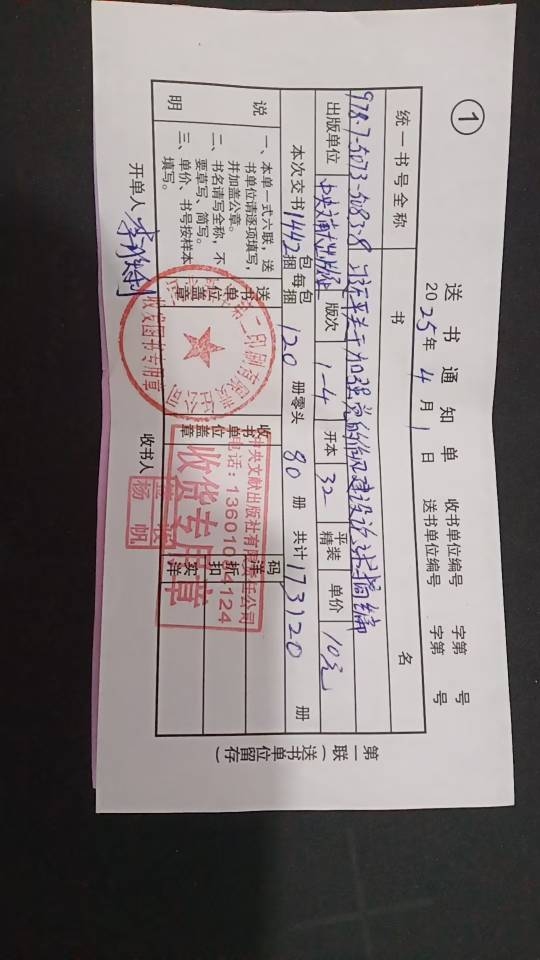 ①
送书通知单
2025年4月1日
收书单位编号 字第 号
送书单位编号 字第 号
统一书号全称 书名
978-7-5073-5083-8 习近平关于加强党的作风建设论述摘编
出版单位 中央文献出版社 版次 1-4 开本 32 平装 精装 单价 10元
本次交书 1442 包捆 每包捆 120 册零头 80 册 共计 173120 册
说明
一、本单一式六联，送书单位请逐项填写，并加盖公章。
二、书名请写全称，不要草写、简写。
三、单价、书号按样本填写。
送书单位盖章
收书单位盖章
码洋
折扣
实洋
第二印刷有限责任公司
收发图书专用章
中央文献出版社有限责任公司
收货专用章
杨帆
开单人 李
收书人
第一联（送书单位留存）